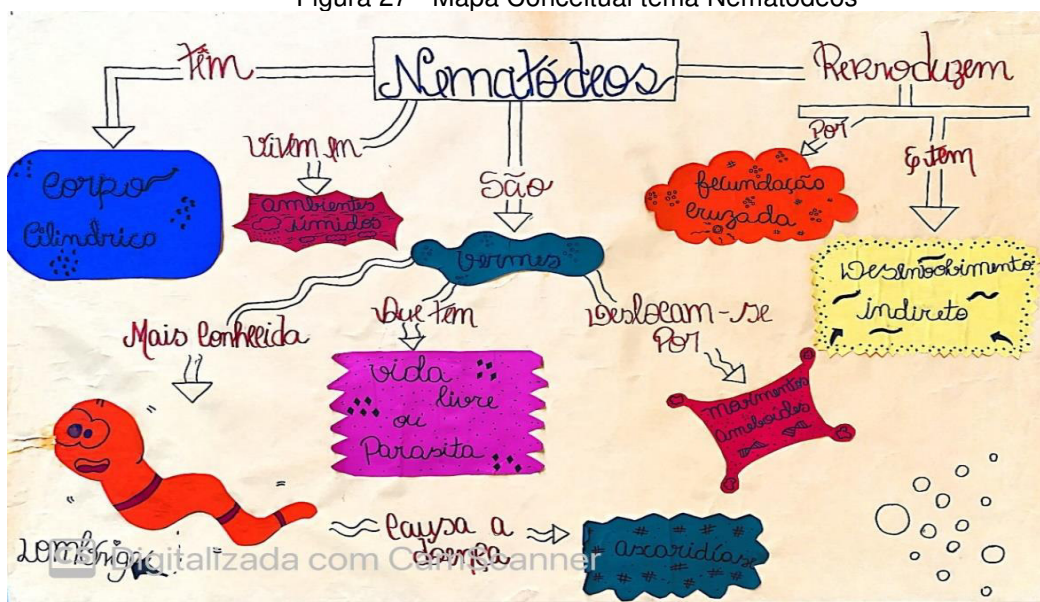 Figura 27 - Mapa Conceitual tema Nematódeos
Nematódeos
Têm
Corpo
Cilíndrico
Vivem em
ambientes
úmidos
São
Vermes
Reproduzem
Por
fecundação
cruzada
E tem
Desenvolvimento
indireto
Mais Conhecida
Lombriga
Que têm
vida
livre
ou
Parasita
Deslocam-se
Por
movimentos
ameboides
Causa a
doença
ascaridíase
CS Digitalizada com CamScanner